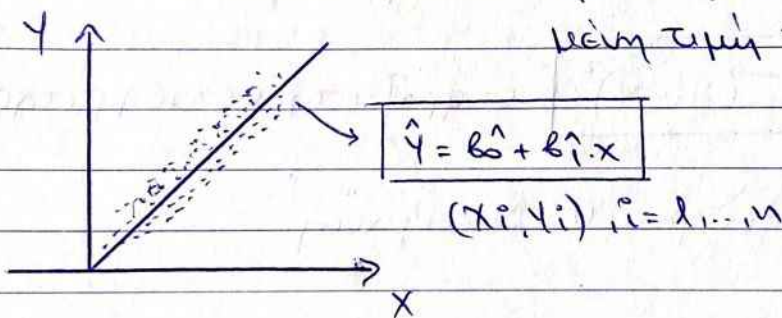 Y
μένη τιμή
Ŷ = b̂0 + b̂1.x
(Xi, Yi), i = 1,..., n
X